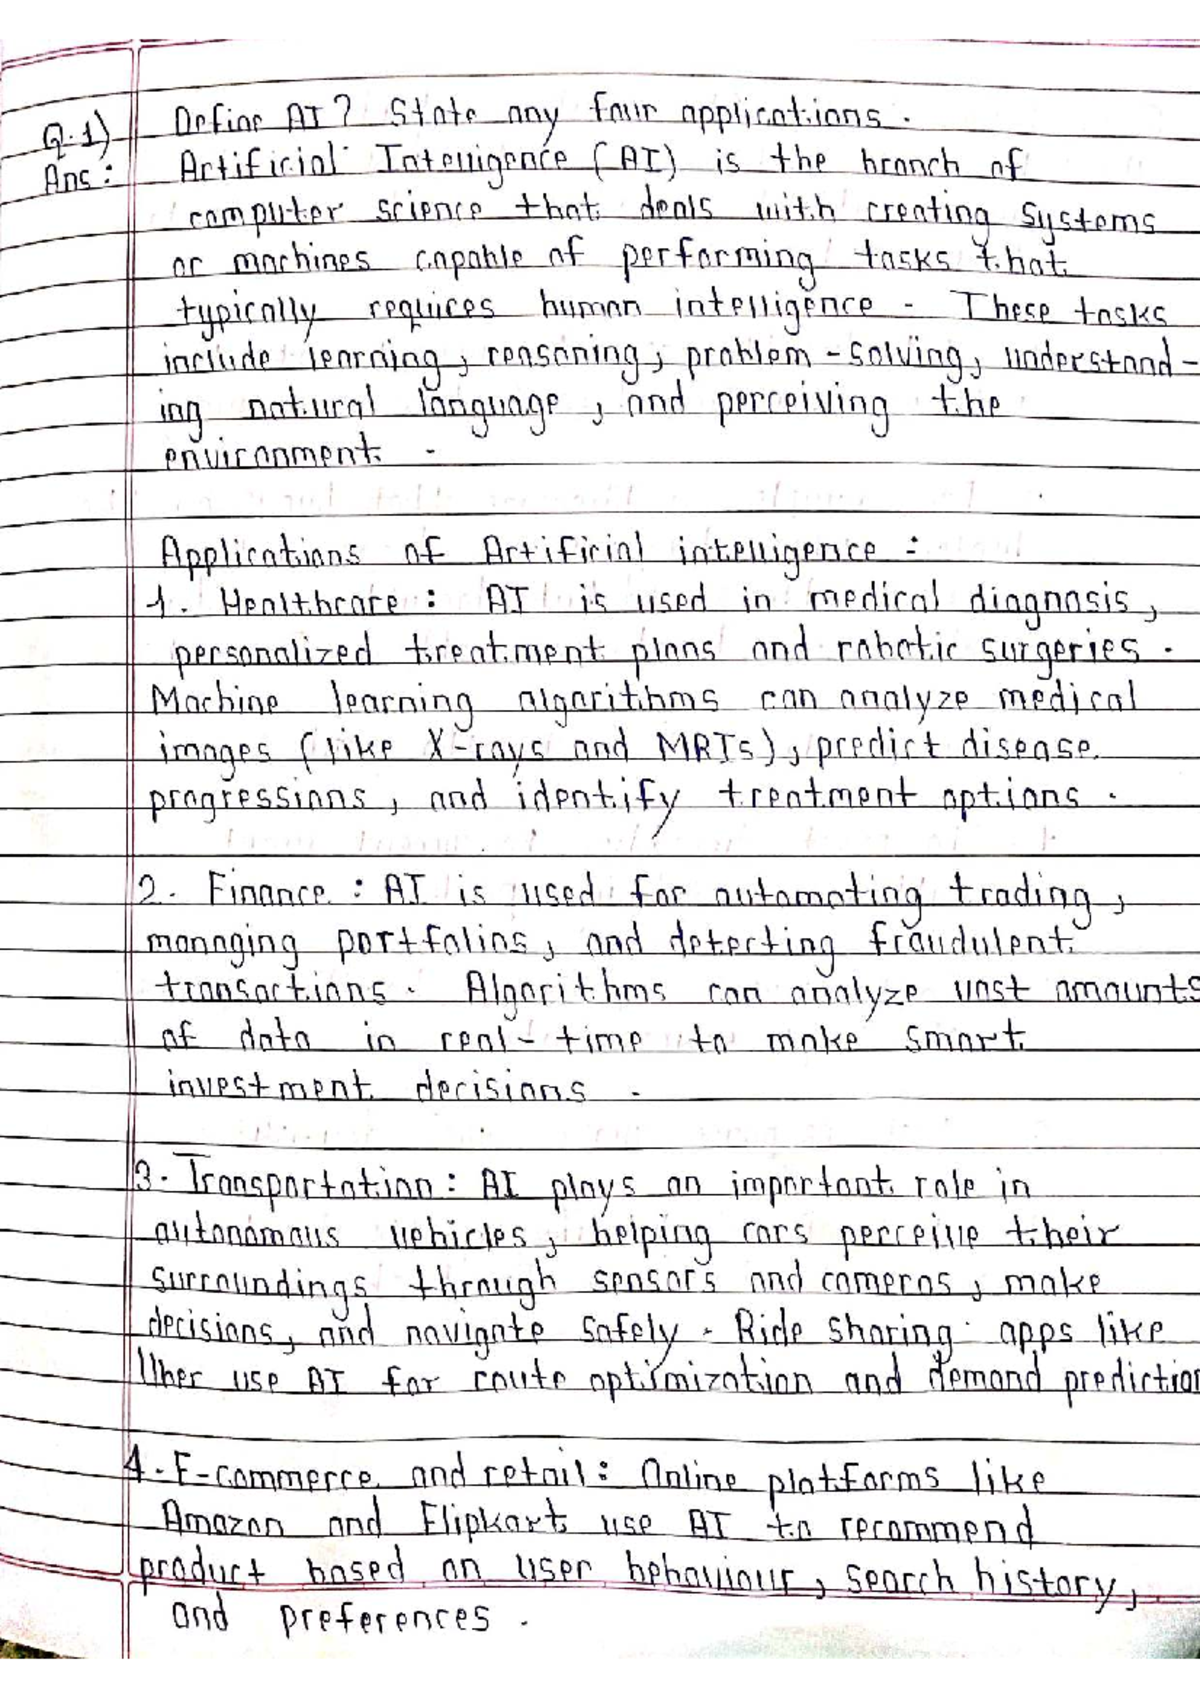 Q.1) Define AI? State any four applications.
Ans: Artificial Intelligence (AI) is the branch of
computer science that deals with creating systems
or machines capable of performing tasks that
typically requires human intelligence. These tasks
include learning, reasoning, problem-solving, understand-
ing natural language, and perceiving the
environment.
Applications of Artificial intelligence:
1. Healthcare: AI is used in medical diagnosis,
personalized treatment plans and robotic surgeries.
Machine learning algorithms can analyze medical
images (like X-rays and MRIs), predict disease
progressions, and identify treatment options.
2. Finance: AI is used for automating trading,
managing portfolios, and detecting fraudulent
transactions. Algorithms can analyze vast amounts
of data in real-time to make smart
investment decisions.
3. Transportation: AI plays an important role in
autonomous vehicles, helping cars perceive their
surroundings through sensors and cameras, make
decisions, and navigate safely. Ride sharing apps like
Uber use AI for route optimization and demand prediction
4. E-commerce and retail: Online platforms like
Amazon and Flipkart use AI to recommend
product based on user behaviour, search history,
and preferences.